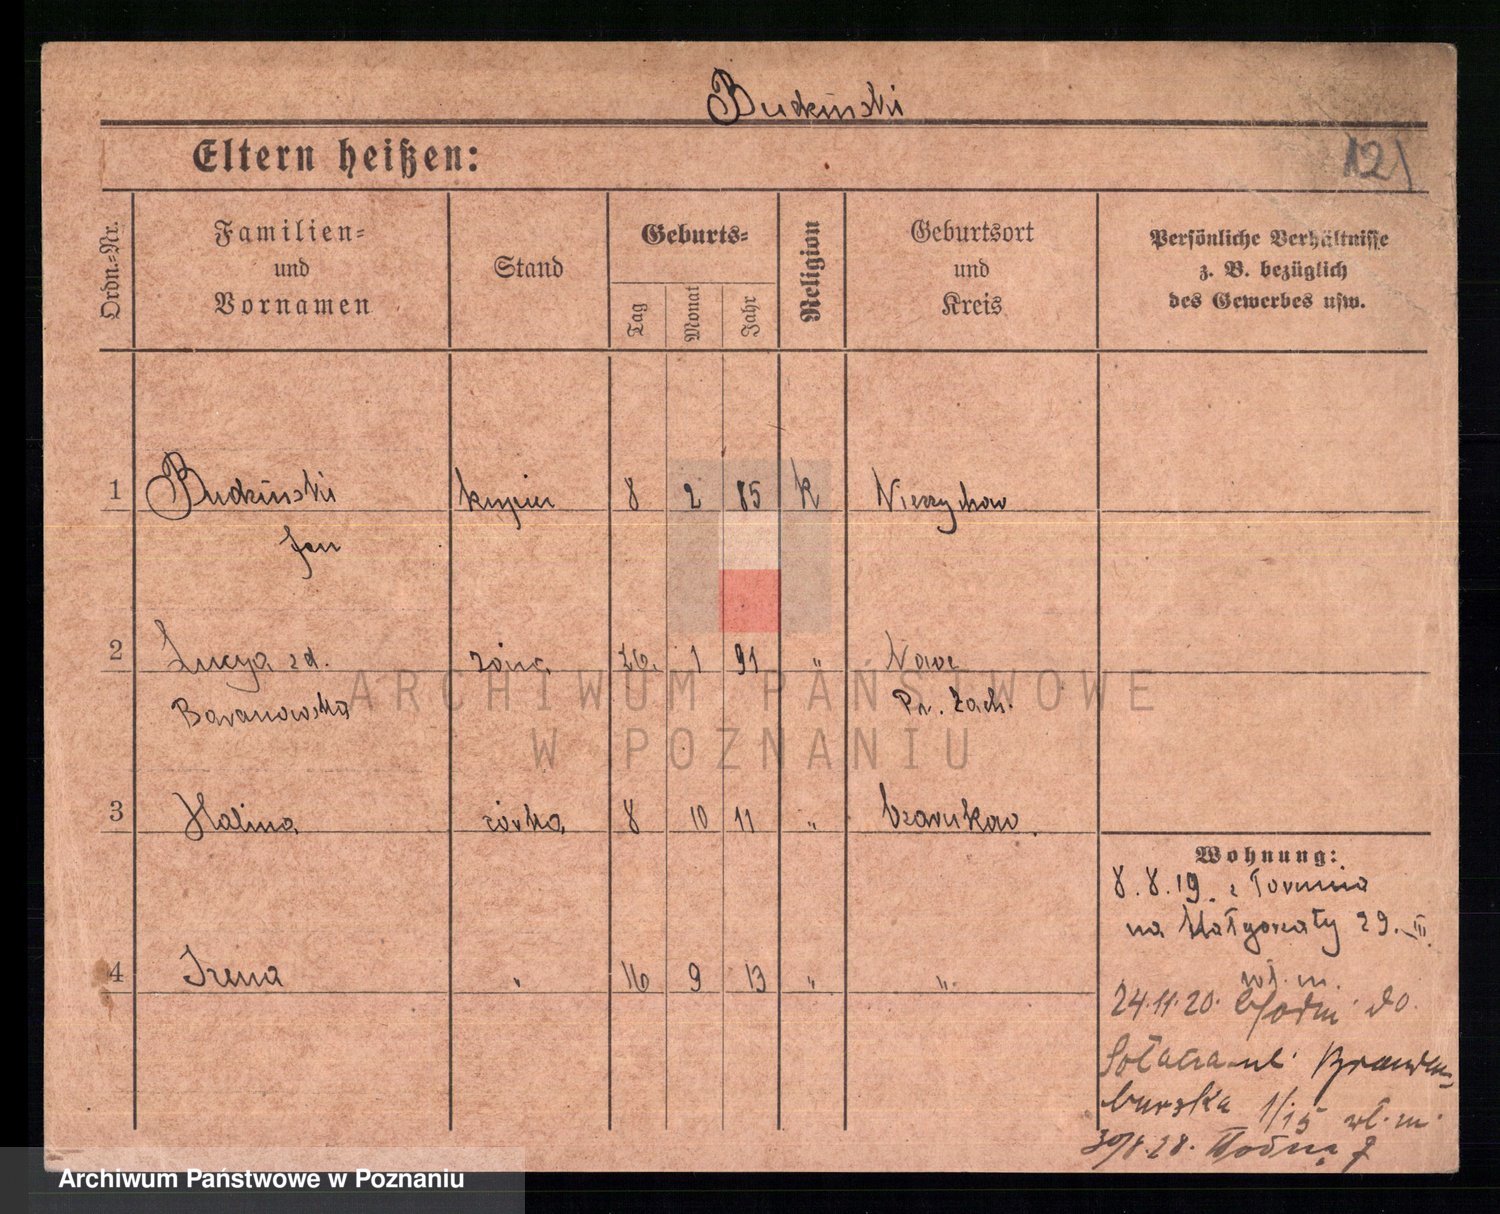 Budziński
Eltern heißen:
121
Ordn.-Nr.
Familien-
und
Vornamen
Stand
Geburts-
Tag
Monat
Jahr
Religion
Geburtsort
und
Kreis
Persönliche Verhältnisse
z. B. bezüglich
des Gewerbes usw.
1 Budziński kupiec 8 2 85 k Nieżychowo
Jan
2 Lucya zd. żona 26. 1 91 " Nowe
Baranowska Pr. Zach.
3 Halina córka 8 10 11 " Czarnków.
Wohnung:
8.8.19. z Torunia
na Małgorzaty 29. III.
4 Irena " 16 9 13 " "
wł. m.
24.11.20. do
Sołacza ul. Branden
burska 1/15 wł. m.
28. 7
ARCHIWUM PAŃSTWOWE
W POZNANIU
Archiwum Państwowe w Poznaniu